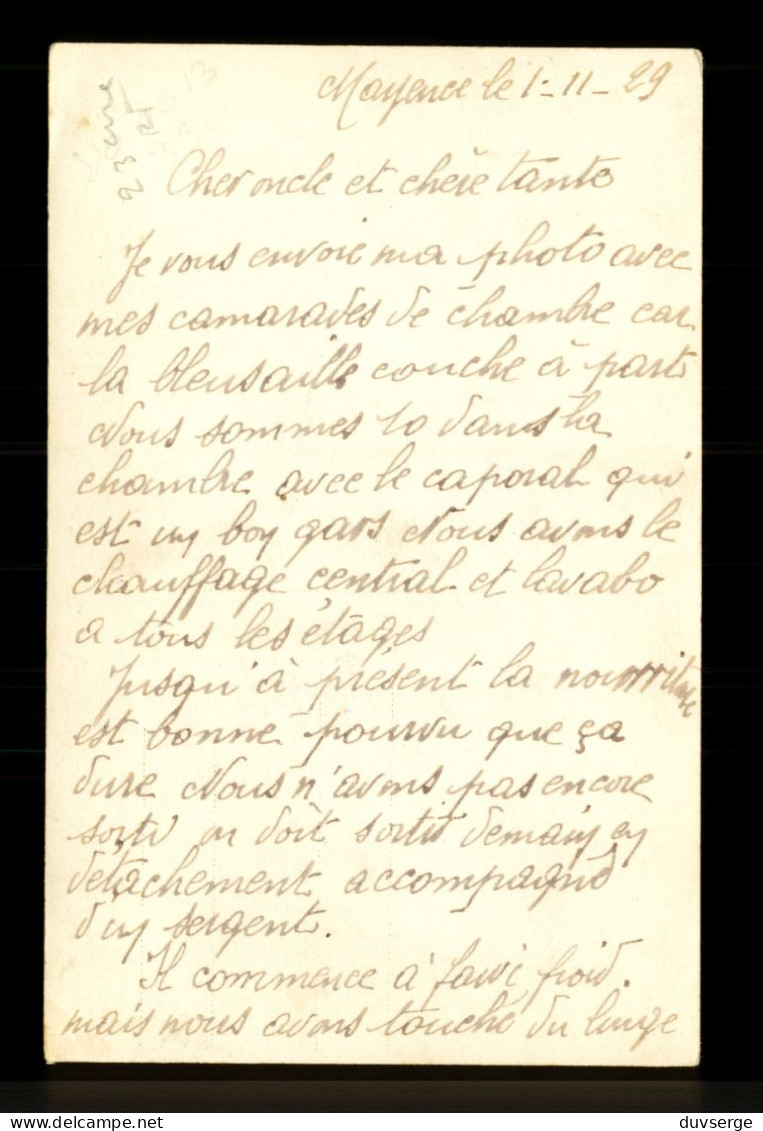 Mayence le 1-11-29
23 eme
Cher oncle et chère tante
Je vous envoie ma photo avec
mes camarades de chambre car
la bleusaille couche à part
Nous sommes 10 dans la
chambre avec le caporal qui
est un bon gars Nous avons le
chauffage central et lavabo
a tous les étages
Jusqu'à présent la nourriture
est bonne pourvu que ça
dure Nous n'avons pas encore
sorti on doit sortir demain en
détachement accompagné
d'un sergent.
Il commence à faire froid.
mais nous avons touché du linge
duvserge
www.delcampe.net